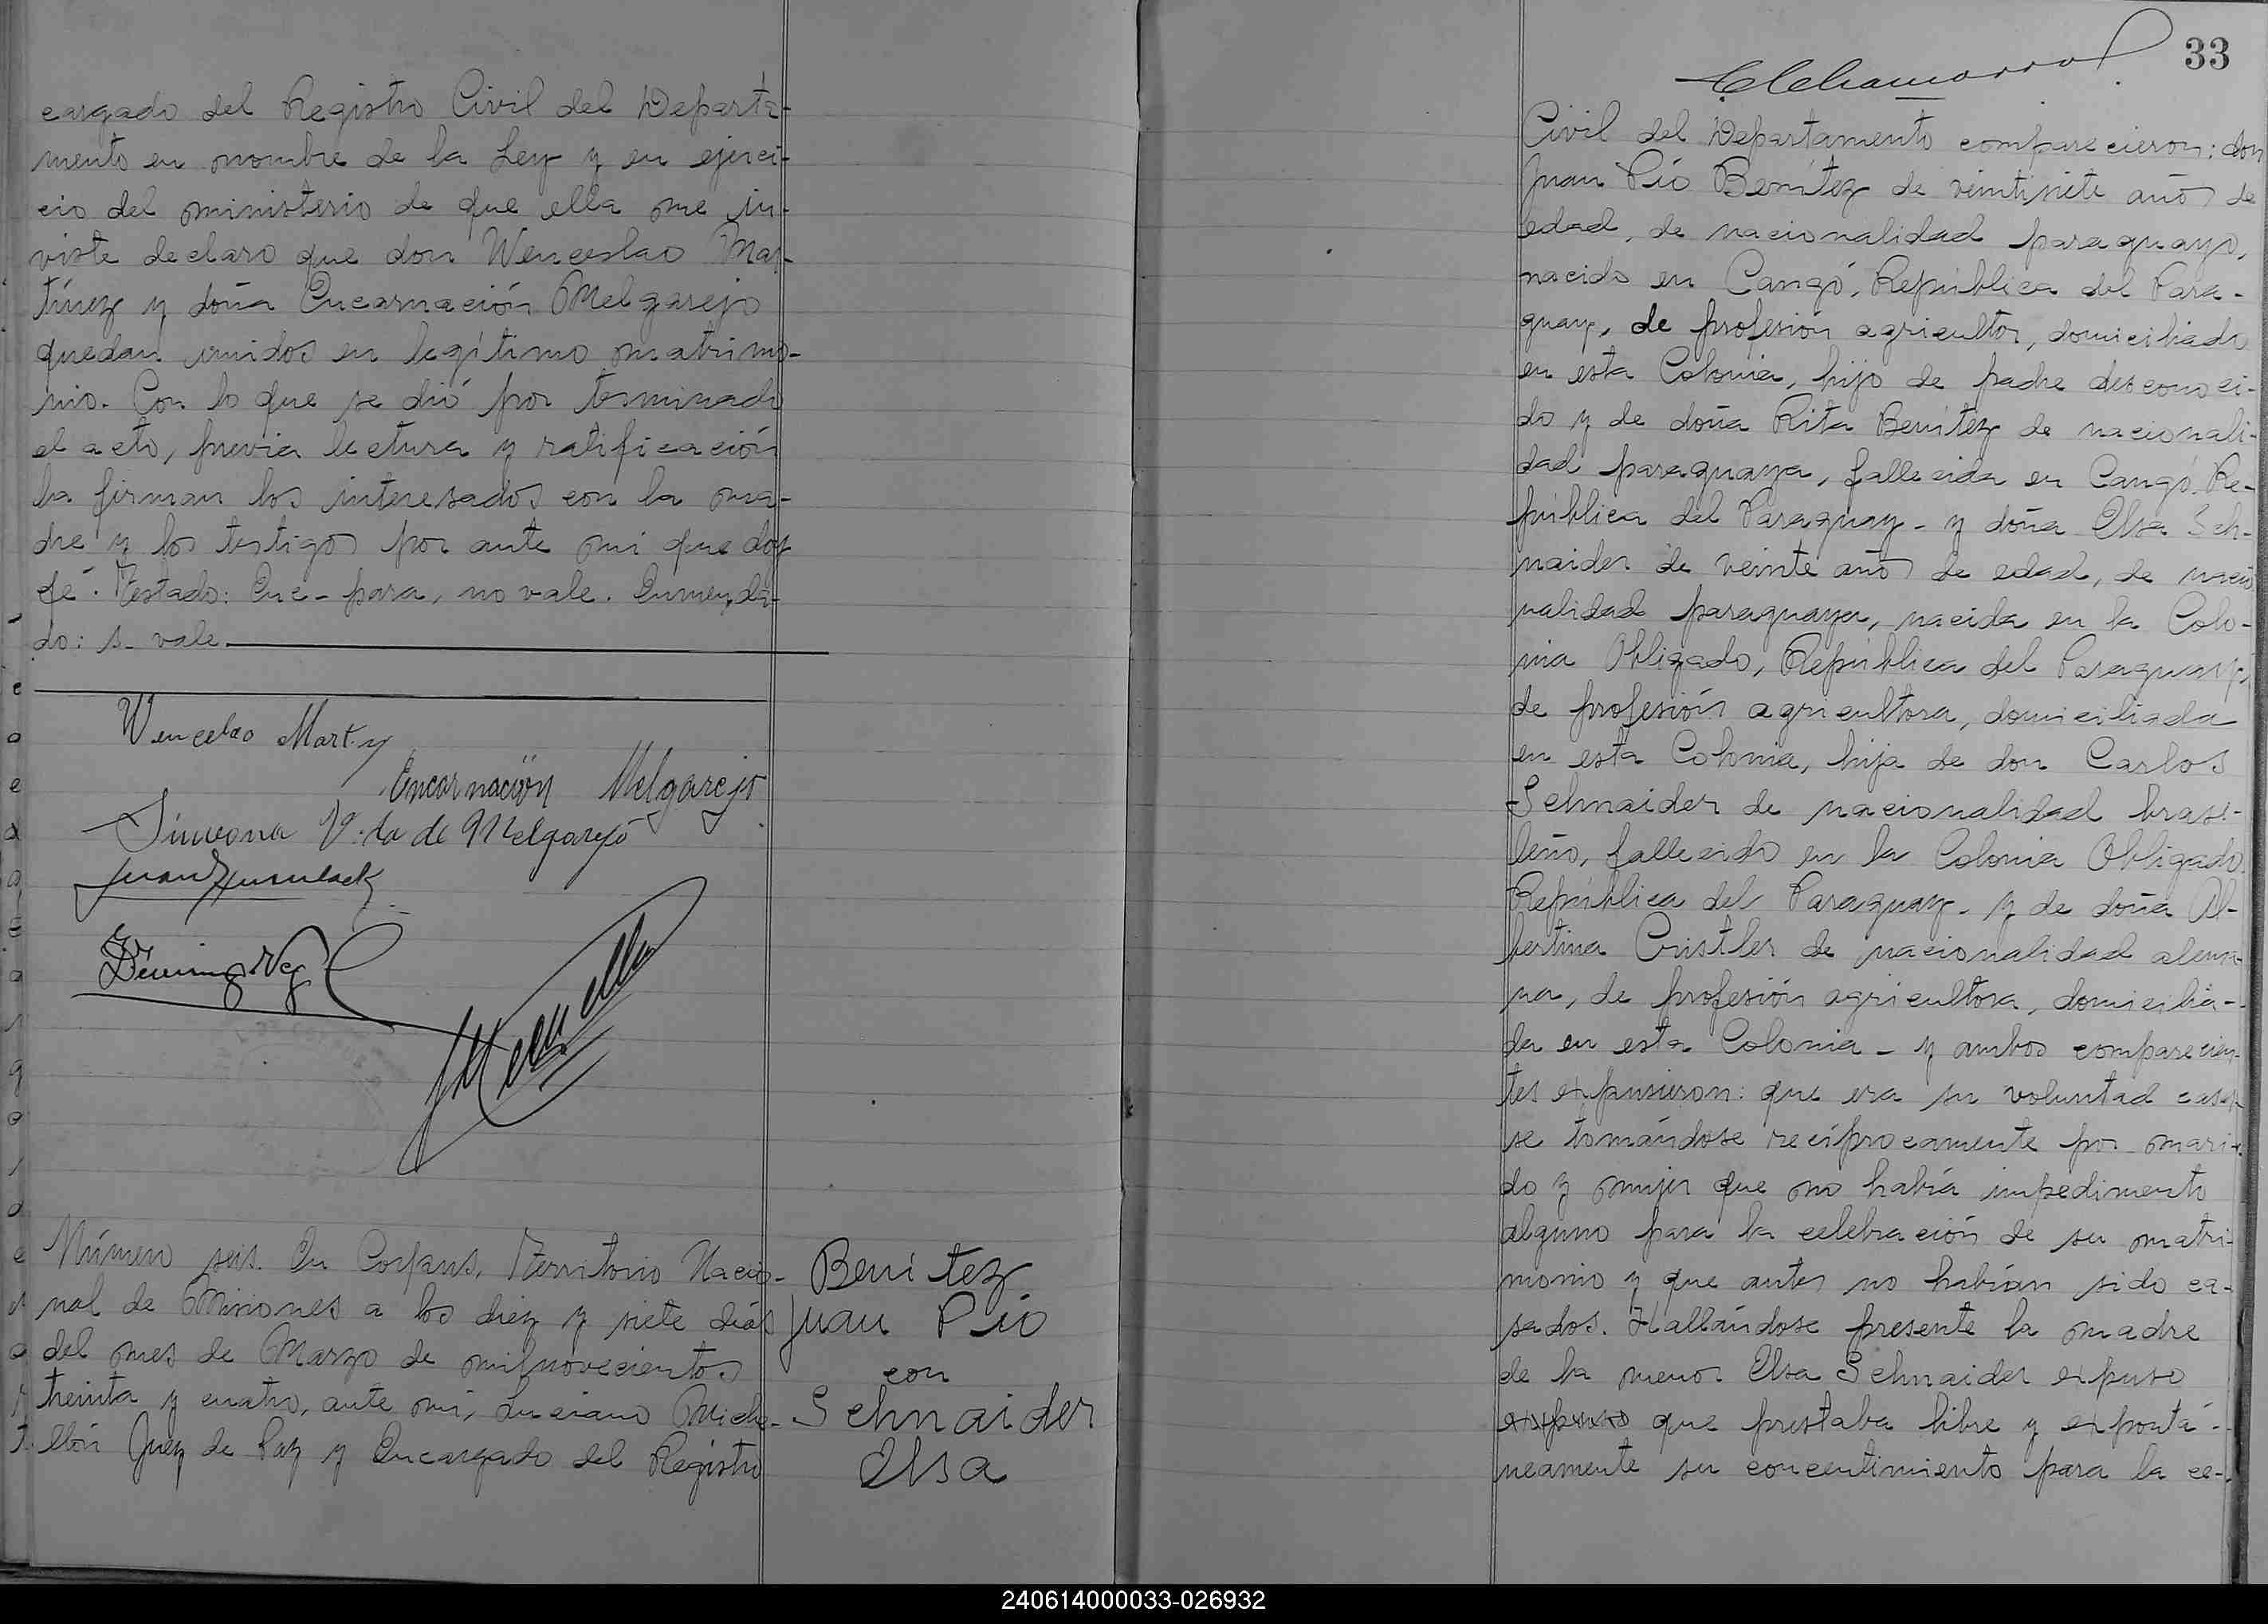 cargado del Registro Civil del Departa-
mento en nombre de la Ley y en ejerci-
cio del ministerio de que ella me in-
viste declaro que don Wenceslao Mar-
tínez y doña Encarnación Melgarejo
quedan unidos en legítimo matrimo-
nio. Con lo que se dió por terminado
el acto, previa lectura y ratificación
la firman los interesados con la ma-
dre y los testigos por ante mi que doy
fé. Testado: Enc- para, no vale. Enmenda-
do: s- vale.
Wencelao Martz
Encarnación Melgarejo
Simeona V. da de Melgarejo
Juan
Número seis. En Corpus, Territorio Nacio-
nal de Misiones a los diez y siete días
del mes de Marzo de mil novecientos
treinta y cuatro, ante mi, Luciano Miche-
llón Juez de Paz y Encargado del Registro
Benitez
Juan Pio
con
Schnaider
Elsa
33
Civil del Departamento comparecieron: don
Juan Pío Benítez de veintisiete años de
edad, de nacionalidad paraguayo,
nacido en Cangó, República del Para-
guay, de profesión agricultor, domiciliado
en esta Colonia, hijo de padre desconoci-
do y de doña Rita Benítez de nacionali-
dad paraguaya, fallecida en Cangó Re-
pública del Paraguay - y doña Elsa Sch-
naider de veinte años de edad, de nacio
nalidad paraguaya, nacida en la Colo-
nia Obligado, República del Paraguay,
de profesión agricultora, domiciliada
en esta Colonia, hija de don Carlos
Schnaider de nacionalidad brasi-
leño, fallecido en la Colonia Obligado
República del Paraguay - y de doña Al-
bertina Cristler de nacionalidad alema-
na, de profesión agricultora, domicilia-
da en esta Colonia - y ambos comparecien-
tes expusieron: que era su voluntad casar
se tomándose recíprocamente por mari-
do y mujer que no había impedimento
alguno para la celebración de su matri-
monio y que antes no habían sido ca-
sados. Hallándose presente la madre
de la menor Elsa Schnaider expuso
expuso que prestaba libre y expontá-
neamente su concentimiento para la ce-
240614000033-026932